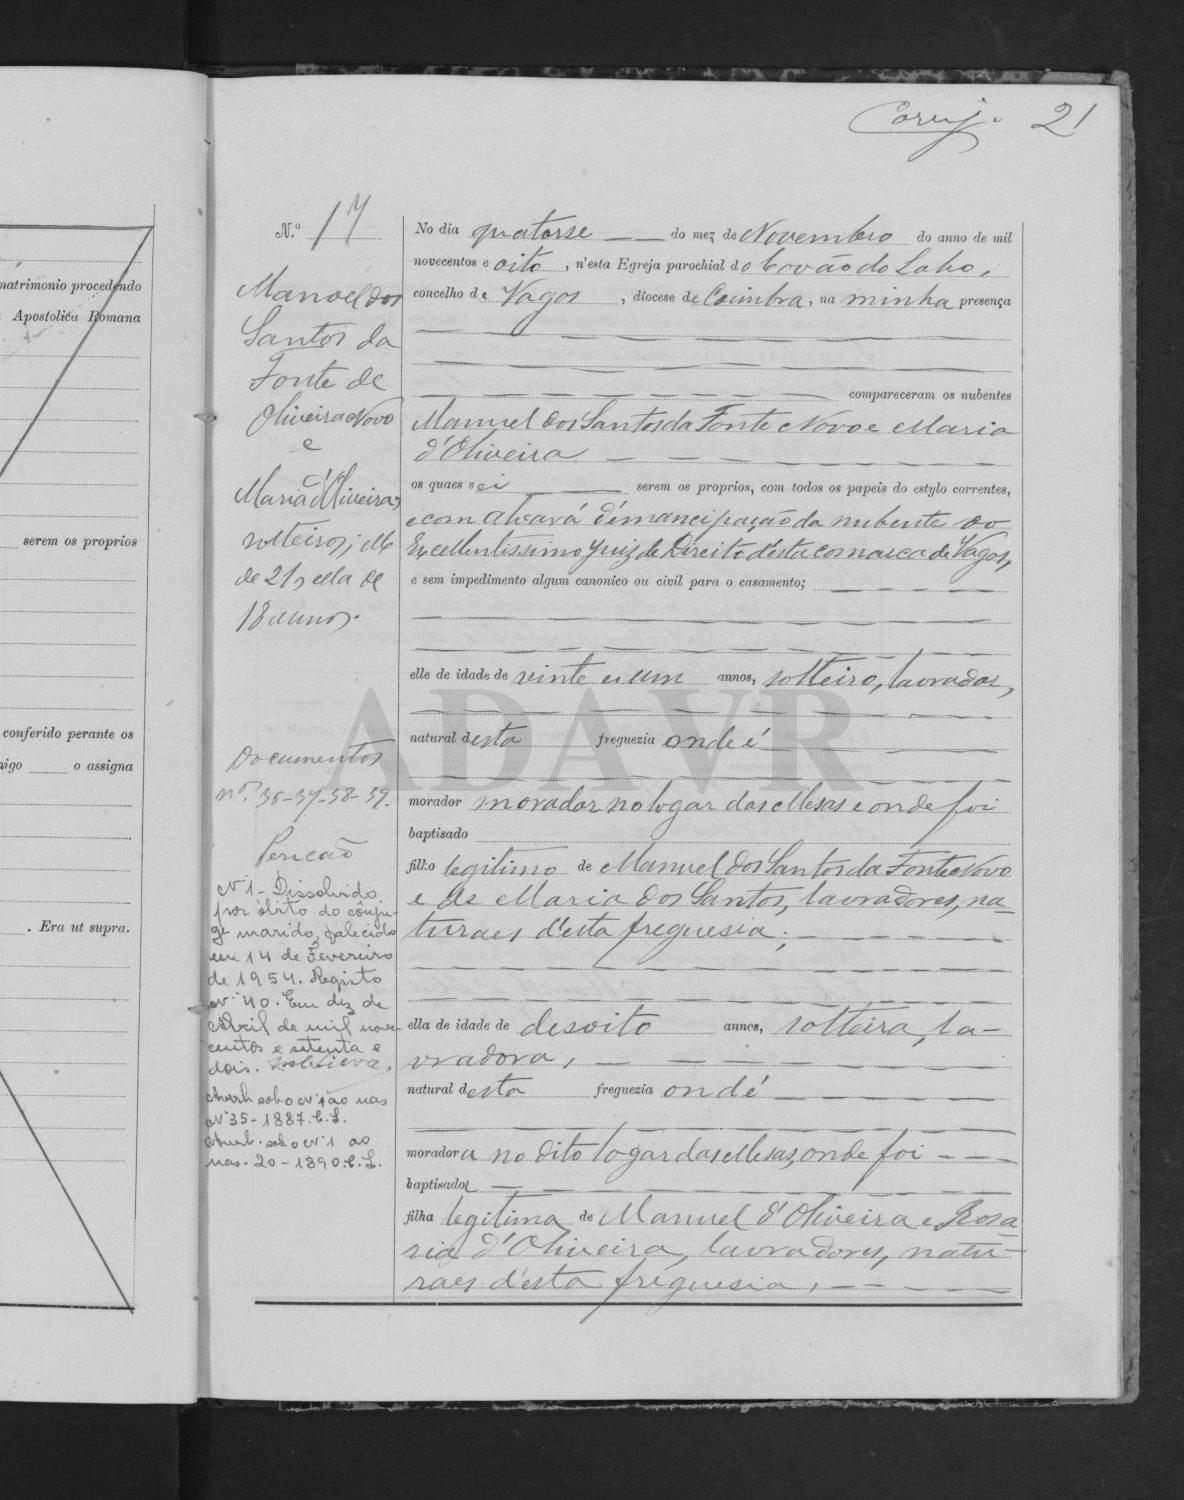 21
matrimonio procedendo
Apostolica Romana
serem os proprios
conferido perante os
o assigna
. Era ut supra.
N.º 17
Manoel dos
Santos da
Fonte de
Oliveira Novo
e
Maria d'Oliveira,
solteiros; elle
de 21, ella de
18 annos.
Documentos
nº. 36-37-38-39.
N.º 1 - Dissolvido
por óbito do cônju-
ge marido, falecido
em 14 de Fevereiro
de 1954. Registo
nº 40. Em dez de
Abril de mil nove-
centos e setenta e
dois.
Averb. sob o Nº 1 ao nas.
Nº 35-1887. C. S.
Averb. sob o Nº 1 ao
nas. 20-1890. C. S.
No dia quatorse do mez de Novembro do anno de mil
novecentos e oito, n'esta Egreja parochial do Covão do Lobo,
concelho de Vagos, diocese de Coimbra, na minha presença
compareceram os nubentes
Manuel dos Santos da Fonte Novo e Maria
d'Oliveira
os quaes sei serem os proprios, com todos os papeis do estylo correntes,
e com alvará d'emancipação da nubente do
Excellentissimo Juiz de Direito d'esta comarca de Vagos,
e sem impedimento algum canonico ou civil para o casamento;
elle de idade de vinte e um annos, solteiro, lavrador,
natural desta freguezia onde é
morador morador no logar das Mesas e onde foi
baptisado
filho legitimo de Manuel dos Santos da Fonte Novo
e de Maria dos Santos, lavradores, na-
turaes d'esta freguesia;
ella de idade de desoito annos, solteira, la-
vradora,
natural desta freguezia ond'é
moradora no dito logar das Mesas, onde foi
baptisada
filha legitima de Manuel d'Oliveira e Rosa
ria d'Oliveira, lavradores, natu-
raes d'esta freguesia,
ADAVR